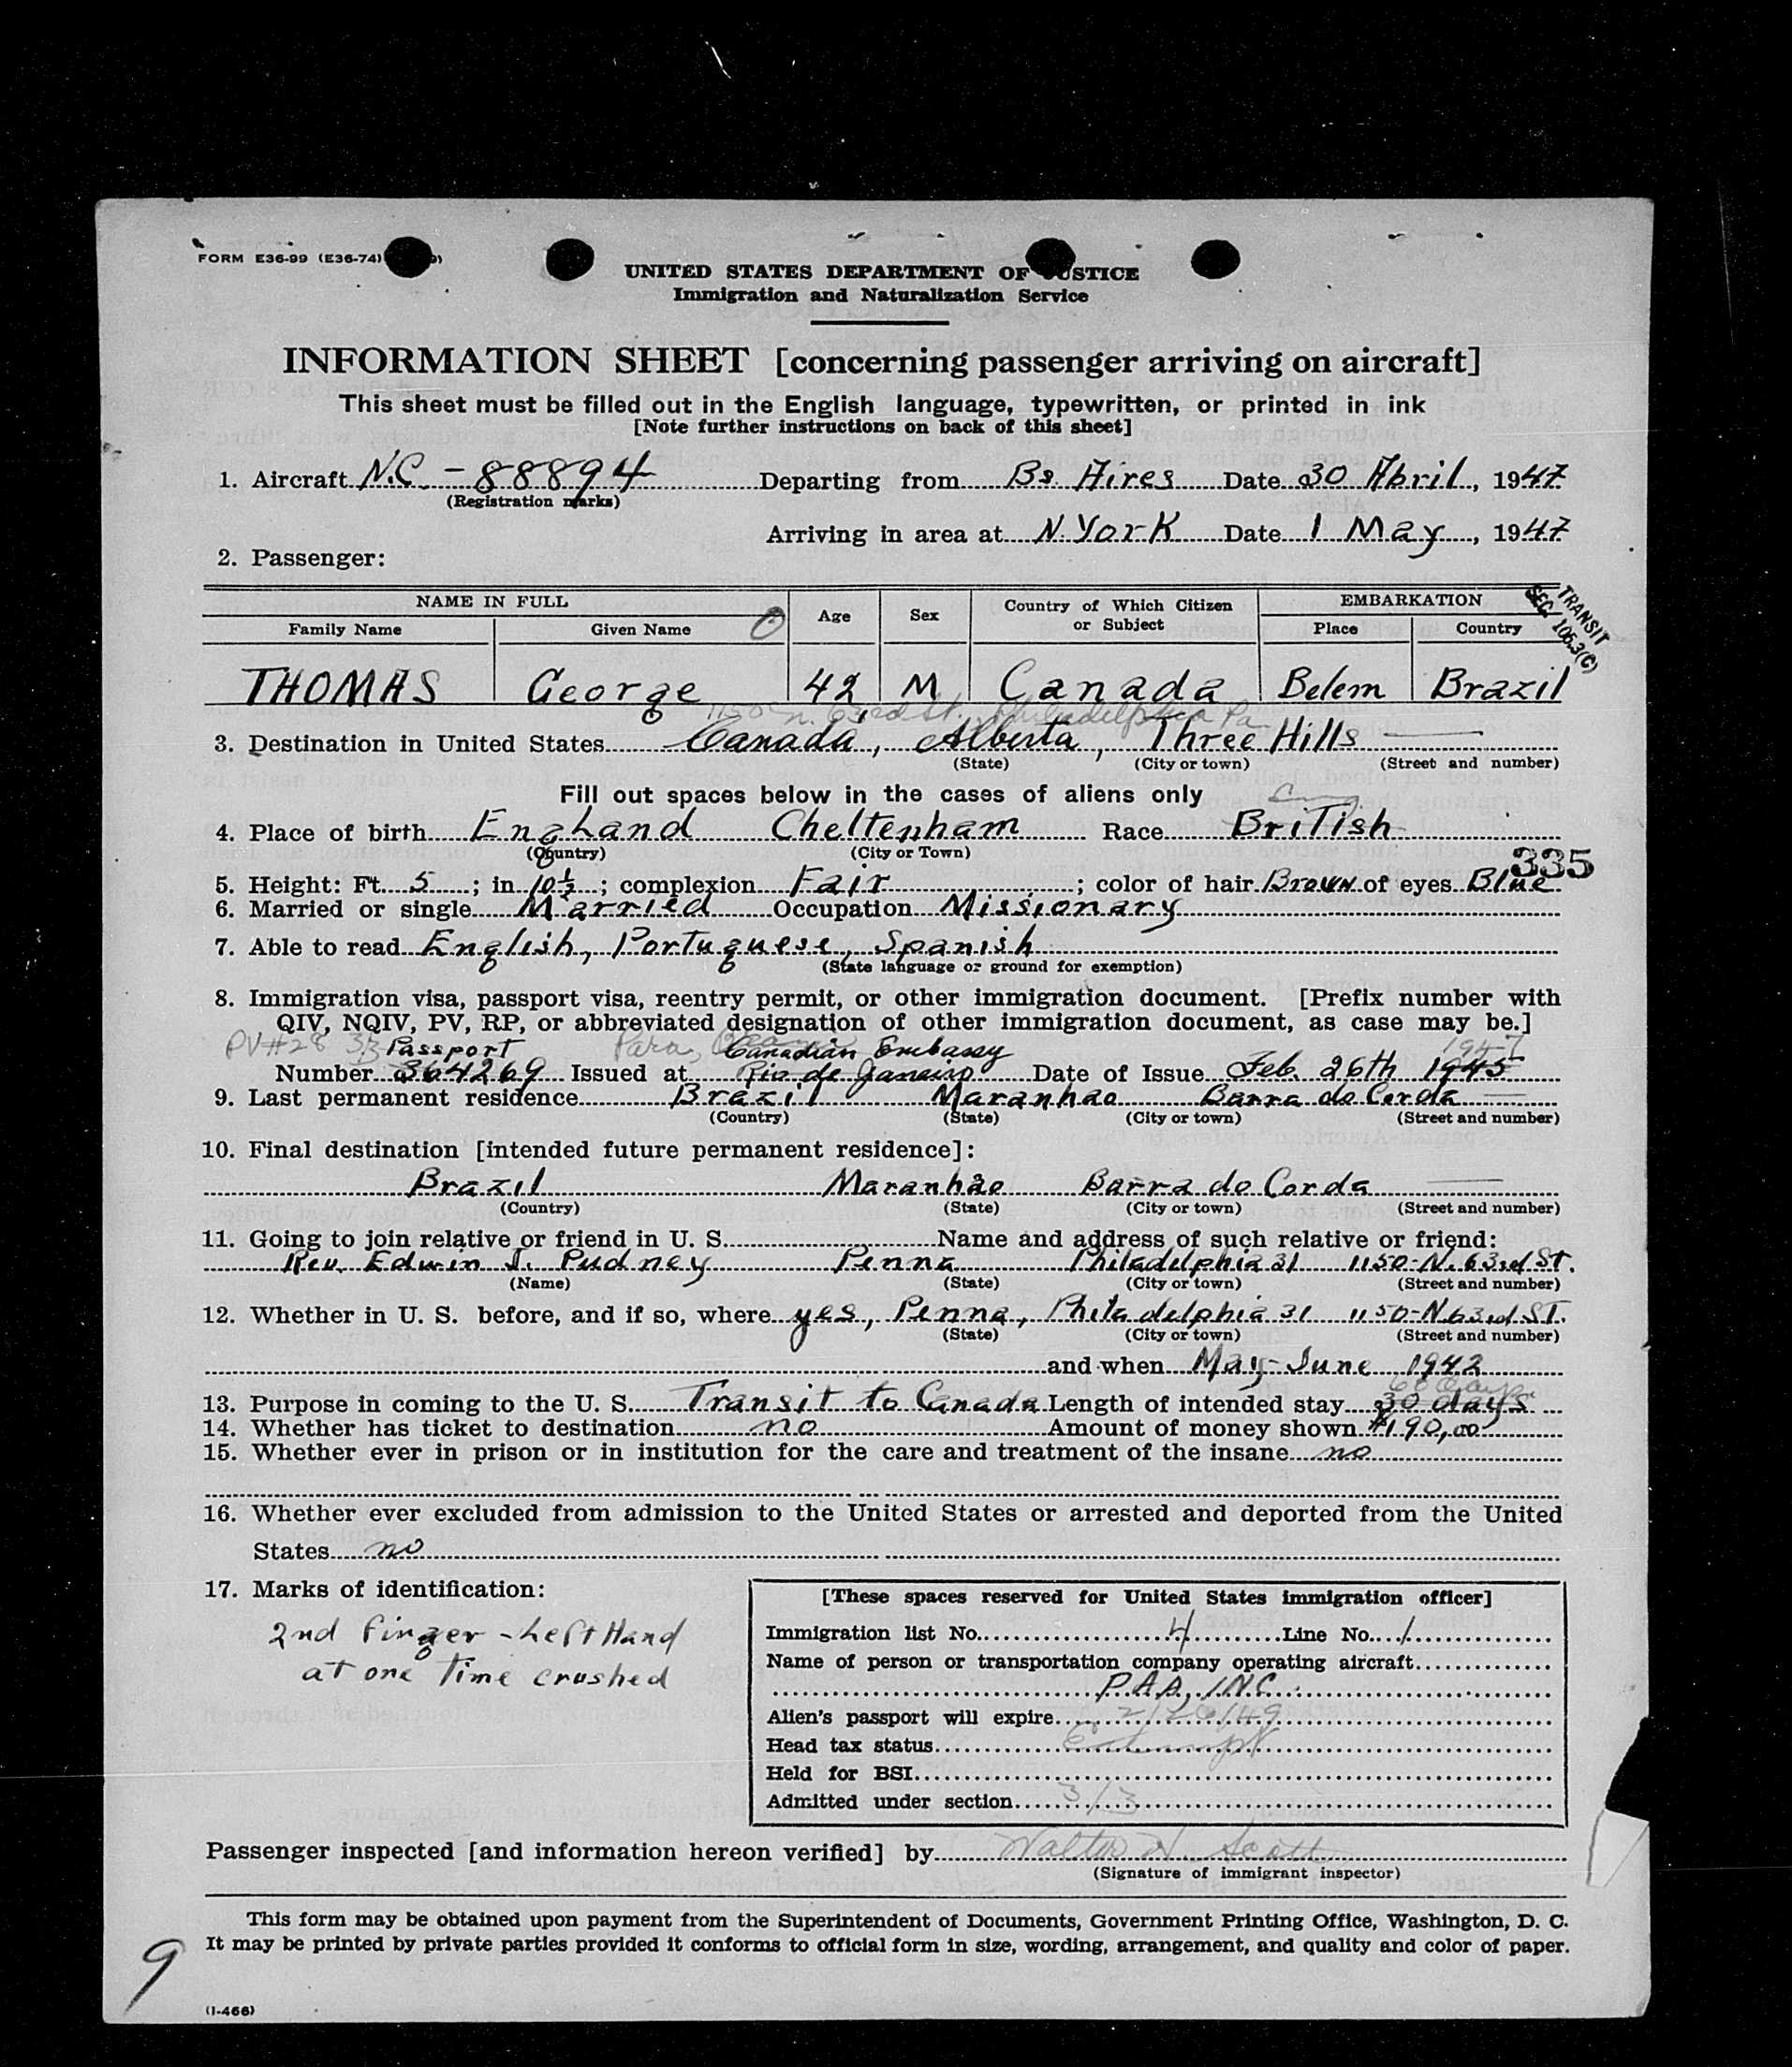 FORM E36-99 (E36-74)
UNITED STATES DEPARTMENT OF JUSTICE
Immigration and Naturalization Service
INFORMATION SHEET [concerning passenger arriving on aircraft]
This sheet must be filled out in the English language, typewritten, or printed in ink
[Note further instructions on back of this sheet]
1. Aircraft N.C. - 88894 Departing from Bs. Aires Date 30 Abril, 1947
(Registration marks)
Arriving in area at N. York Date 1 May, 1947
2. Passenger:
TRANSIT
SEC. 105.3(C)
NAME IN FULL Age Sex Country of Which Citizen or Subject EMBARKATION
Family Name Given Name Place Country
THOMAS George 42 M Canada Belem Brazil
1150 N. 63rd St. Philadelphia Pa
3. Destination in United States Canada, Alberta, Three Hills
(State) (City or town) (Street and number)
Fill out spaces below in the cases of aliens only
4. Place of birth England Cheltenham Race British
(Country) (City or Town)
335
5. Height: Ft. 5 ; in 10½ ; complexion Fair ; color of hair Brown of eyes Blue
6. Married or single Married Occupation Missionary
7. Able to read English, Portuguese, Spanish
(State language or ground for exemption)
8. Immigration visa, passport visa, reentry permit, or other immigration document. [Prefix number with
QIV, NQIV, PV, RP, or abbreviated designation of other immigration document, as case may be.]
PV#28 33 Passport Para, Canadian Embassy 1947
Number 364269 Issued at Rio de Janeiro Date of Issue Feb. 26th 1945
9. Last permanent residence Brazil Maranhao Barra do Corda
(Country) (State) (City or town) (Street and number)
10. Final destination [intended future permanent residence]:
Brazil Maranhão Barra do Corda
(Country) (State) (City or town) (Street and number)
11. Going to join relative or friend in U. S. Name and address of such relative or friend:
Rev. Edwin J. Pudney Penna Philadelphia 31 1150-N. 63rd St.
(Name) (State) (City or town) (Street and number)
12. Whether in U. S. before, and if so, where yes, Penna, Philadelphia 31 1150-N 63rd ST.
(State) (City or town) (Street and number)
and when May-June 1942
60 days
13. Purpose in coming to the U. S. Transit to Canada Length of intended stay 30 days
14. Whether has ticket to destination no Amount of money shown $190,00
15. Whether ever in prison or in institution for the care and treatment of the insane no
16. Whether ever excluded from admission to the United States or arrested and deported from the United
States no
17. Marks of identification:
2nd finger - Left Hand
at one time crushed
[These spaces reserved for United States immigration officer]
Immigration list No. 4 Line No. 1
Name of person or transportation company operating aircraft
P.A.A, INC.
Alien's passport will expire 2/26/49
Head tax status Exempt
Held for BSI
Admitted under section 3/3
Passenger inspected [and information hereon verified] by Walter W. Scott
(Signature of immigrant inspector)
This form may be obtained upon payment from the Superintendent of Documents, Government Printing Office, Washington, D. C.
It may be printed by private parties provided it conforms to official form in size, wording, arrangement, and quality and color of paper.
9
(I-466)